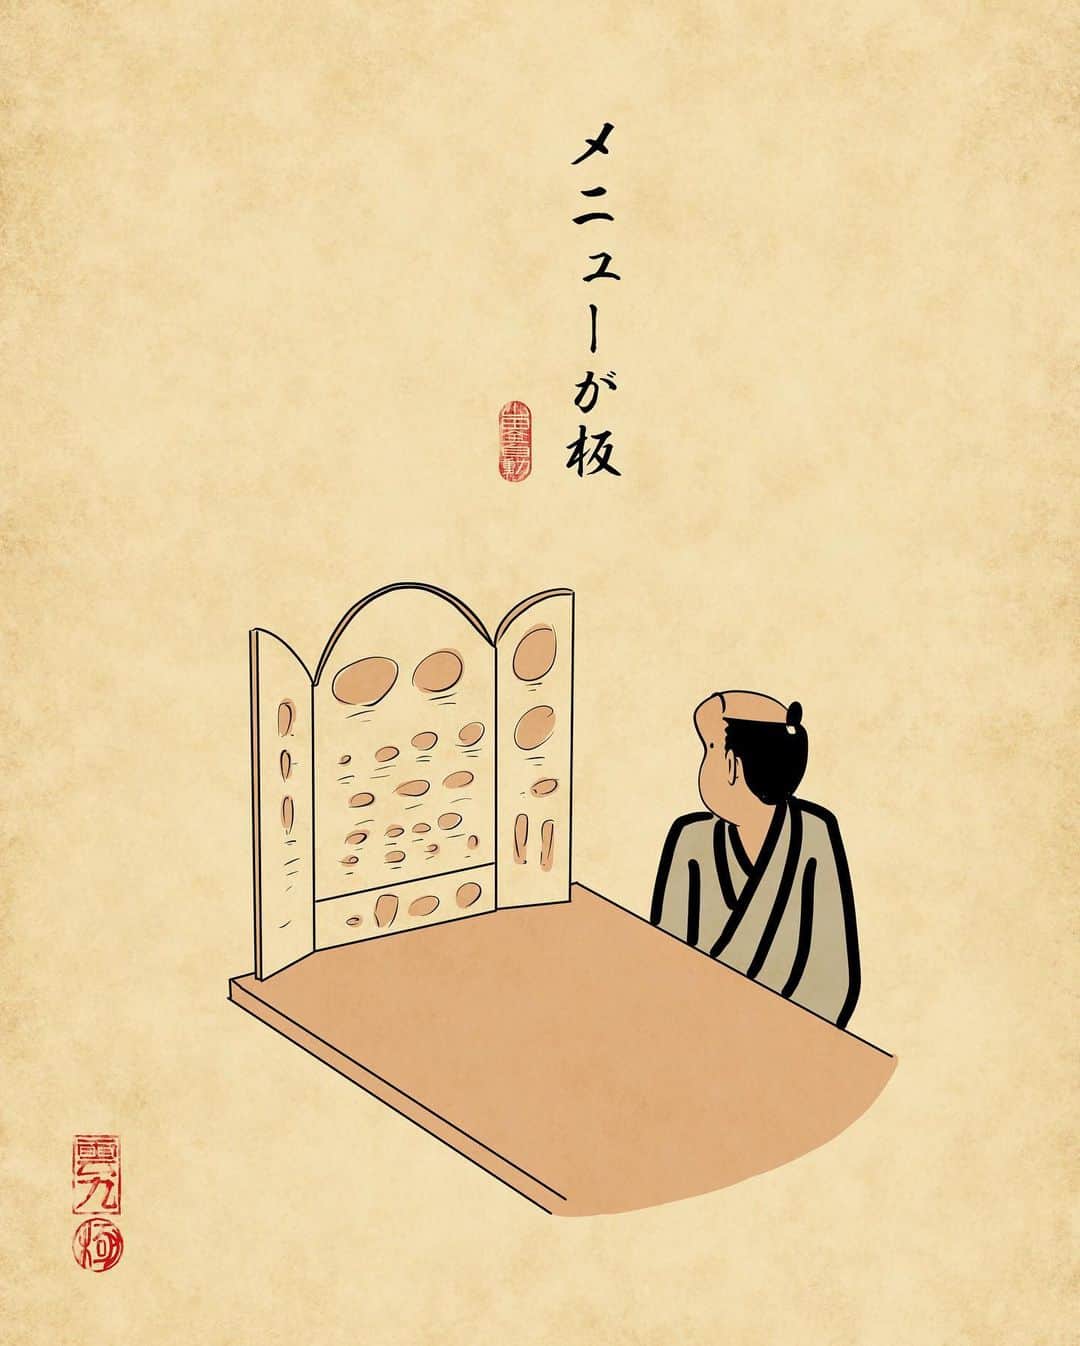 メニューが板
雲九
極